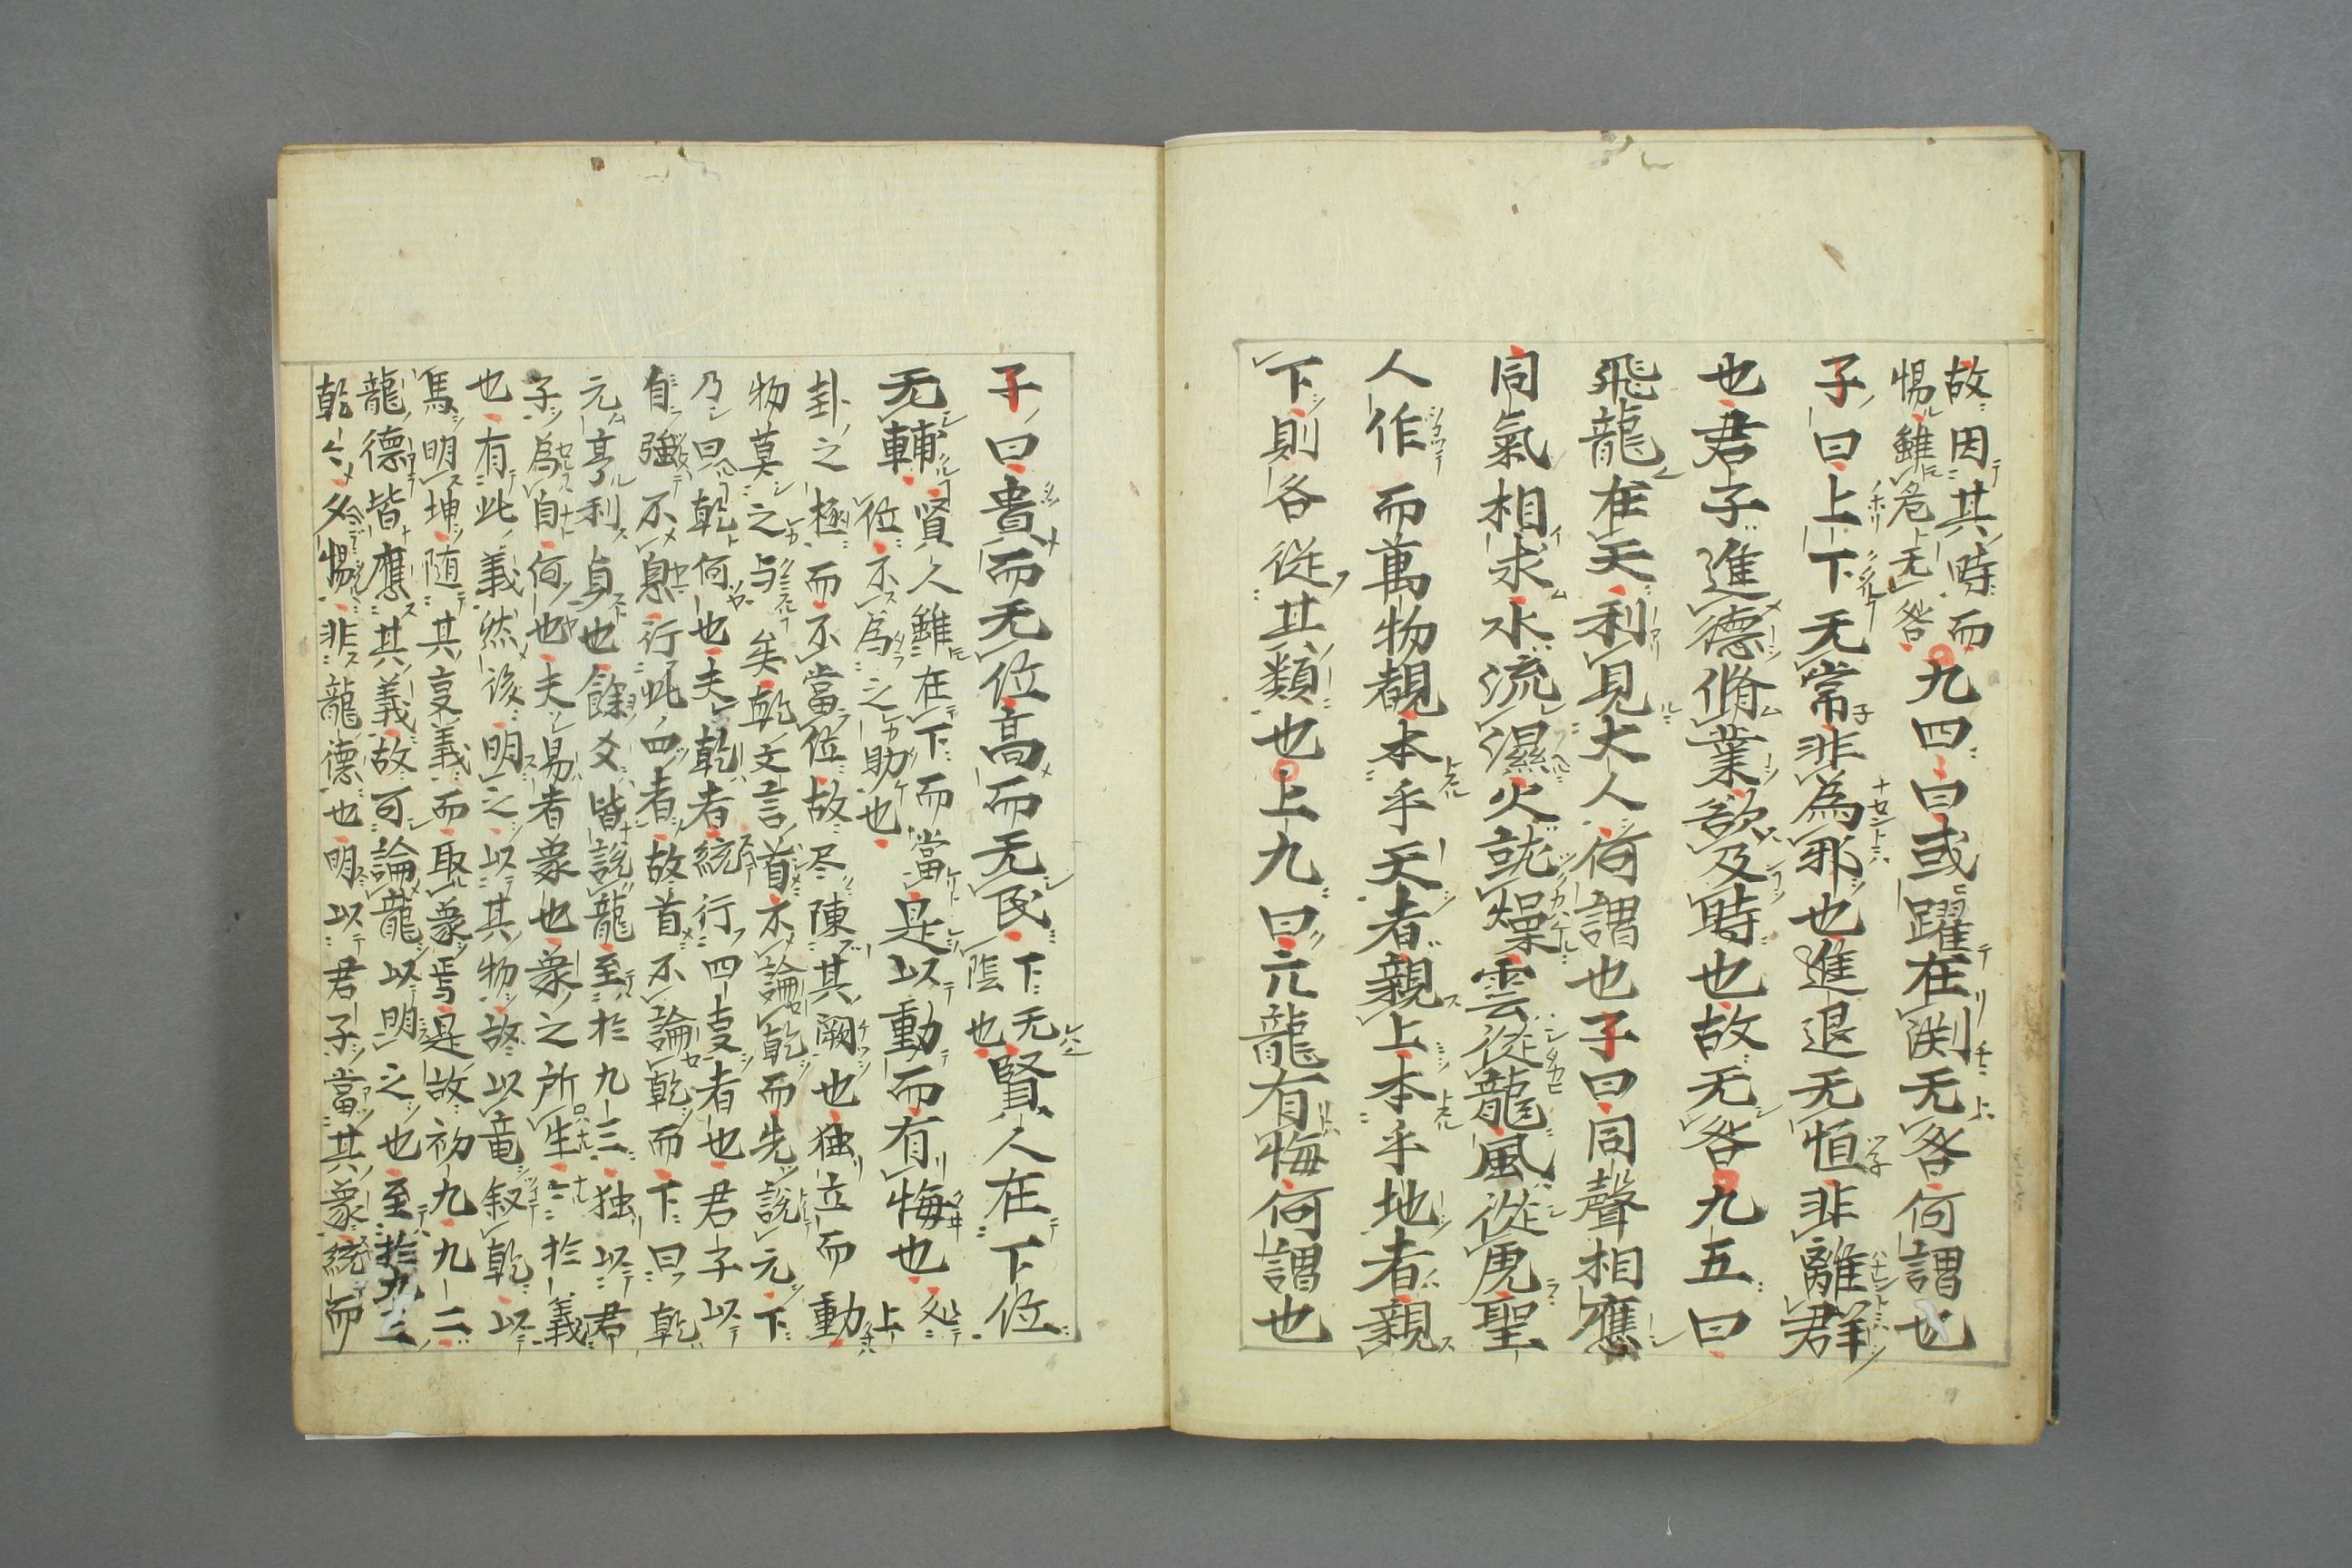 故因其時而
惕雖危无咎
九四曰或躍在渕无咎何謂也
子曰上下无常非為邪也進退无恒非離群
也君子進德脩業欲及時也故无咎九五曰
飛龍在天利見大人何謂也子曰同聲相應
同氣相求水流濕火就燥雲從龍風從虎聖
人作而萬物覩本乎天者親上本乎地者親
下則各從其類也上九曰亢龍有悔何謂也
子曰貴而无位高而无民下无
陰也
賢人在下位
无輔賢人雖在下而當
位不為之助也
是以動而有悔也処
上
卦之極而不當位故尽陳其闕也独立而動
物莫之与矣乾文言首不論乾而先說元下
乃曰乾何也夫乾者統行四事者也君子以
自強不息行此四者故首不論乾而下曰乾
元亨利貞也餘爻皆說龍至於九三独以君
子為自何也夫易者象也象之所生生於義
也有此義然後明之以其物故以竜叙乾以
馬明坤随其事義而取象焉是故初九九二
龍德皆應其義故可論龍以明之也至於九三
乾乾夕惕非龍德也明以君子當其象統而